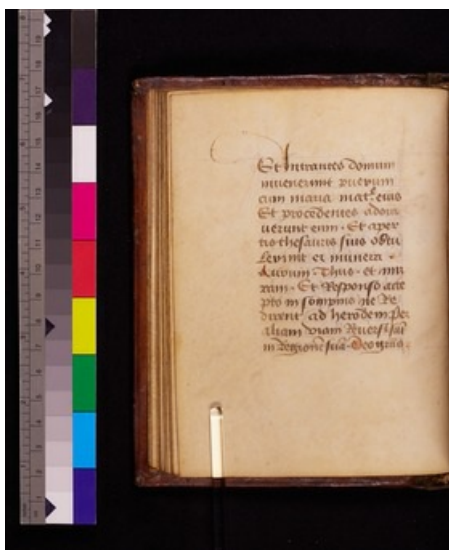 Et Intrantes domum
inuenerunt puerum
cum maria mat^e eius
Et procedentes adora
uerunt eum · Et aper
tis thesauris suis obtu
lerunt ei munera ·
Aurum Thus · et mir
ram · Et Responso acce
pto in sompnis ne Re
dirent ad herodem Per
aliam viam Reuersi sut
in Regione sua · Deo gras ·